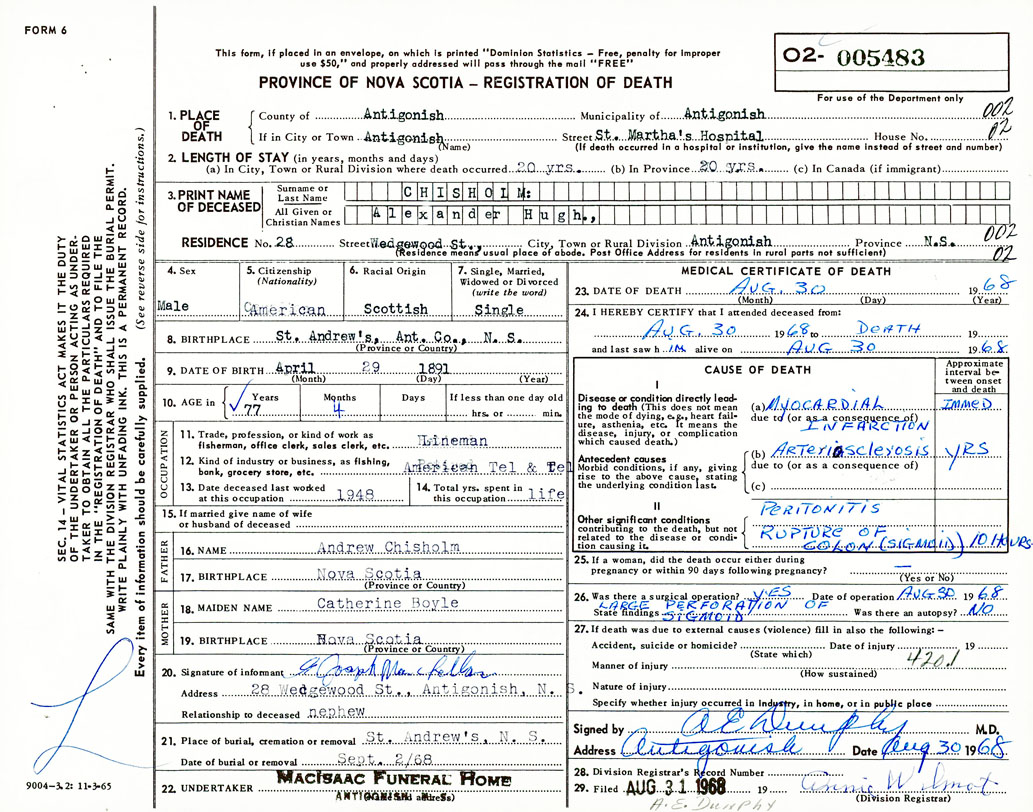 FORM 6
This form, if placed in an envelope, on which is printed "Dominion Statistics – Free, penalty for improper
use $50," and properly addressed will pass through the mail "FREE"
PROVINCE OF NOVA SCOTIA – REGISTRATION OF DEATH
02- 005483
For use of the Department only
002
02
1. PLACE OF DEATH
County of Antigonish Municipality of Antigonish
If in City or Town Antigonish Street St. Martha's Hospital House No.
(Name) (If death occurred in a hospital or institution, give the name instead of street and number)
2. LENGTH OF STAY (in years, months and days)
(a) In City, Town or Rural Division where death occurred 20 yrs. (b) In Province 20 yrs. (c) In Canada (if immigrant)
3. PRINT NAME OF DECEASED
Surname or Last Name CHISHOLM:
All Given or Christian Names Alexander Hugh.,
RESIDENCE No. 28 Street Wedgewood St., City, Town or Rural Division Antigonish Province N.S.
(Residence means usual place of abode. Post Office Address for residents in rural parts not sufficient)
002
02
4. Sex
Male
5. Citizenship
(Nationality)
American
6. Racial Origin
Scottish
7. Single, Married,
Widowed or Divorced
(write the word)
Single
8. BIRTHPLACE St. Andrew's, Ant. Co., N. S.
(Province or Country)
9. DATE OF BIRTH April 29 1891
(Month) (Day) (Year)
10. AGE in Years Months Days If less than one day old
77 4 hrs. or min.
OCCUPATION
11. Trade, profession, or kind of work as
fisherman, office clerk, sales clerk, etc. Lineman
12. Kind of industry or business, as fishing,
bank, grocery store, etc. American Tel & Tel
13. Date deceased last worked
at this occupation 1948
14. Total yrs. spent in
this occupation life
15. If married give name of wife
or husband of deceased
FATHER
16. NAME Andrew Chisholm
17. BIRTHPLACE Nova Scotia
(Province or Country)
MOTHER
18. MAIDEN NAME Catherine Boyle
19. BIRTHPLACE Nova Scotia
(Province or Country)
20. Signature of informant
Address 28 Wedgewood St., Antigonish, N. S.
Relationship to deceased nephew
21. Place of burial, cremation or removal St. Andrew's, N. S.
Date of burial or removal Sept. 2/68
22. UNDERTAKER MACISAAC FUNERAL HOME
ANTIGONISH N.S.
MEDICAL CERTIFICATE OF DEATH
23. DATE OF DEATH AUG. 30 1968
(Month) (Day) (Year)
24. I HEREBY CERTIFY that I attended deceased from:
AUG. 30 1968 to DEATH 19
and last saw h IM alive on AUG 30 1968
CAUSE OF DEATH
Approximate
interval be-
tween onset
and death
I
Disease or condition directly lead-
ing to death (This does not mean
the mode of dying, e.g., heart fail-
ure, asthenia, etc. It means the
disease, injury, or complication
which caused death.)
(a) MYOCARDIAL IMMED
due to (or as a consequence of)
INFARCTION
Antecedent causes
Morbid conditions, if any, giving
rise to the above cause, stating
the underlying condition last.
(b) ARTeriosclerosis YRS
due to (or as a consequence of)
(c)
II
Other significant conditions
contributing to the death, but not
related to the disease or condi-
tion causing it.
PERITONITIS
RUPTURE OF
COLON (SIGMOID) 10 HOURS
25. If a woman, did the death occur either during
pregnancy or within 90 days following pregnancy? —
(Yes or No)
26. Was there a surgical operation? YES Date of operation AUG 30 1968
State findings LARGE PERFORATION OF
SIGMOID Was there an autopsy? NO
27. If death was due to external causes (violence) fill in also the following: –
Accident, suicide or homicide? Date of injury 19
(State which)
420.1
Manner of injury
(How sustained)
Nature of injury
Specify whether injury occurred in Industry, in home, or in public place
Signed by A E Dunphy M.D.
Address Antigonish Date Aug 30 1968
28. Division Registrar's Record Number
29. Filed AUG 31 1968 19 Annie Wilmot
(Division Registrar)
A.E. Dunphy
SEC. 14 – VITAL STATISTICS ACT MAKES IT THE DUTY
OF THE UNDERTAKER OR PERSON ACTING AS UNDER-
TAKER TO OBTAIN ALL THE PARTICULARS REQUIRED
IN THE "REGISTRATION OF DEATH" AND TO FILE THE
SAME WITH THE DIVISION REGISTRAR WHO SHALL ISSUE THE BURIAL PERMIT.
WRITE PLAINLY WITH UNFADING INK. THIS IS A PERMANENT RECORD.
Every item of information should be carefully supplied. (See reverse side for instructions.)
9004-3.2: 11-3-65